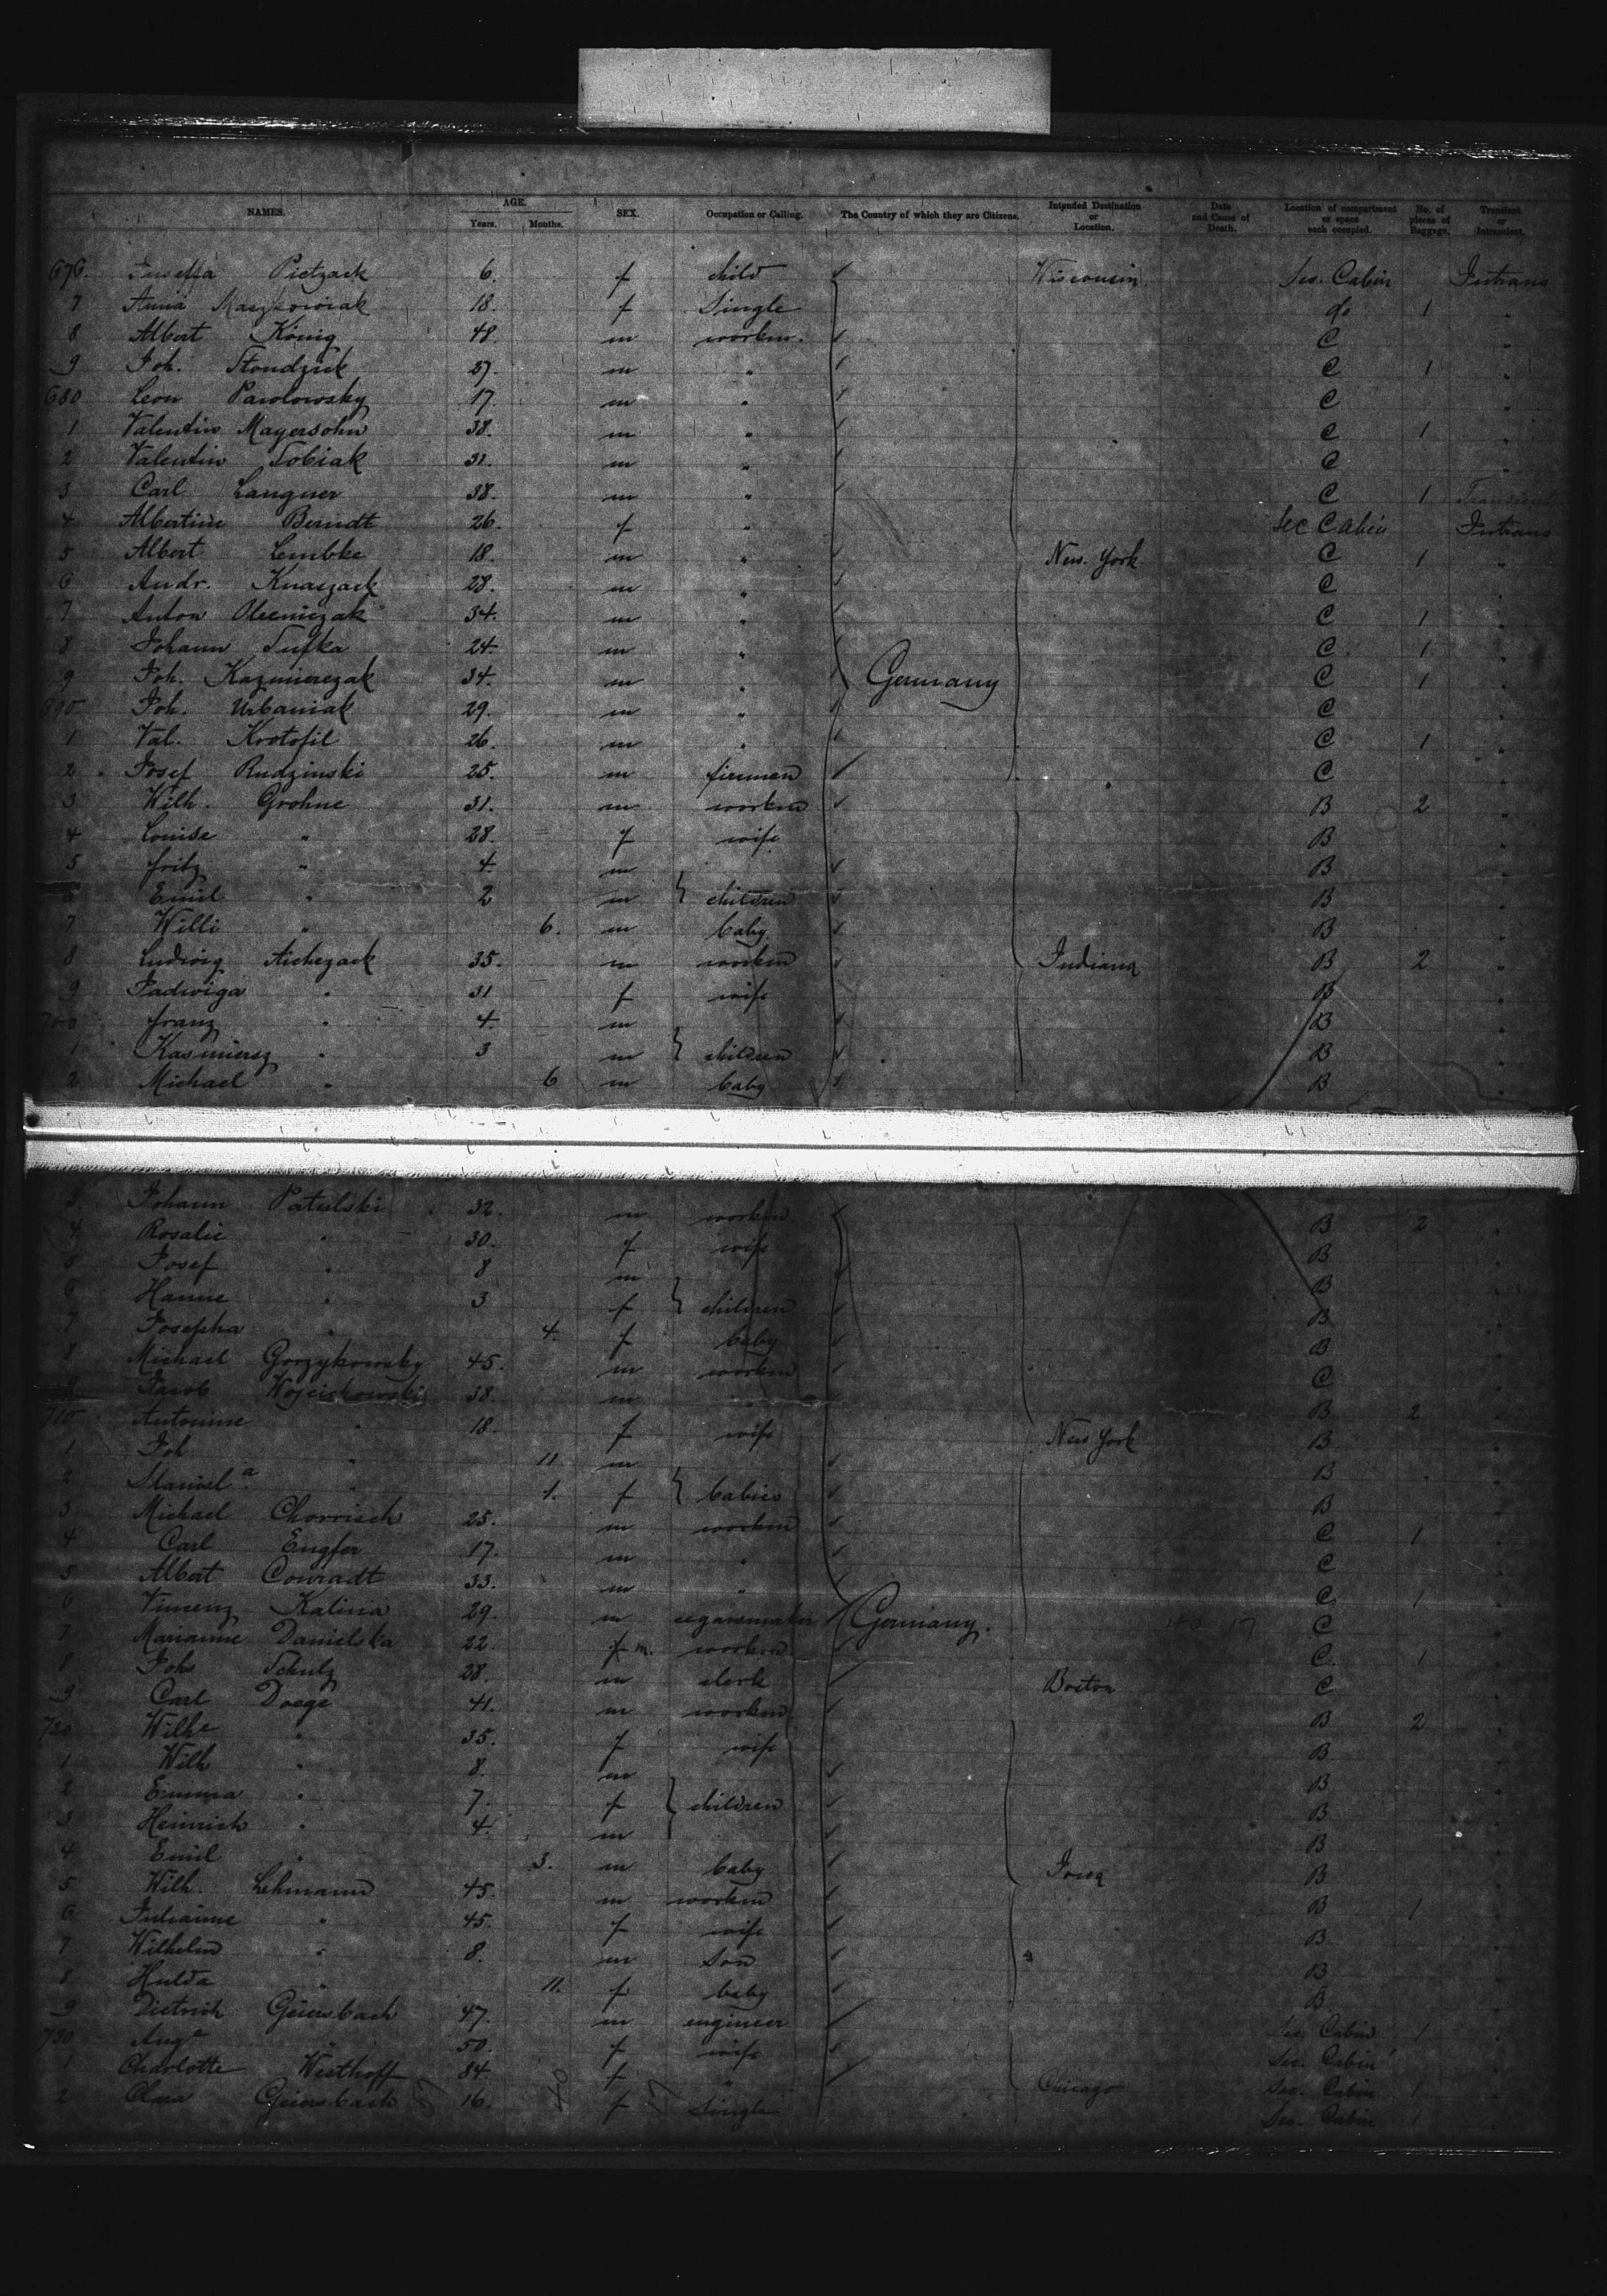 NAMES. AGE. Years. Months. SEX. Occupation or Calling. The Country of which they are Citizens. Intended Destination or Location. Date and Cause of Death. Location of compartment or space each occupied. No. of pieces of Baggage. Transient or Intransient.
676. Pietzack 6. f child Wisconsin Sec. Cabin Intrans
7 Anna 18. f Single do 1 "
8 Albert König 48. m workm. C "
9 Joh. 37. m " C 1 "
680 Leon Pawlowsky 17. m " C "
1 Valentin Mayersohn 38. m " C 1 "
2 Valentin Tobiak 31. m " C "
3 Carl Languer 38. m " C 1 Transient
4 Albertine Berndt 26. f " Sec Cabin Intrans
5 Albert Lembke 18. m " New York C 1 "
6 Andr. Knaszack 28. m " C "
7 Anton 34. m " C 1 "
8 Johann Tufka 24. m " C 1 "
9 Joh. Kazmierczak 34. m " Germany C 1 "
690 Joh. Urbaniak 29. m " C "
1 Val. Krotofil 26. m " C 1 "
2 Josef Rudzinski 25. m firemen C "
3 Wilh. Grohne 31. m workm B 2 "
4 Louise " 28. f wife B "
5 Fritz " 4. m B "
6 Emil " 2 m } children B "
7 Willi " 6. m baby B "
8 Ludwig 35. m workm Indiana B 2 "
9 Jadwiga " 31 f wife B "
700 Franz " 4. m B "
1 Kasmiersz " 3 m } children B "
2 Michael " 6 m baby B "
3 Johann Patulski 32. m workm B 2 "
4 Rosalie " 30. f wife B "
5 Josef " 8 m B "
6 Hanne " 3 f } children B "
7 Josepha " 4. f baby B "
8 Michael Gorzykowsky 45. m workm C "
9 Jacob Wojciechowski 38. m " B 2 "
710 Antonine " 18. f wife New York B "
1 Joh " 11 m B "
2 " 1. f } babies B "
3 Michael Chorrisch 25. m workm C 1 "
4 Carl Engfer 17. m " C "
5 Albert Conradt 33. m " C 1 "
6 Vincenz Kalina 29. m cegarsmaker Germany. C "
7 Marianne Danielska 22. f m. workm C 1 "
8 Joh Schulz 28. m clerk Boston C "
9 Carl Doege 41. m workm B 2 "
720 Wilhe " 35. f wife B "
1 Wilh " 8. m B "
2 Emma " 7. f } children B "
3 Heinrich " 4. m B "
4 Emil " 3. m baby Iowa B "
5 Wilh. Lehmann 45. m workm B 1 "
6 Julianne " 45. f wife B "
7 Wilhelm " 8. m Son B "
8 Hulda " 11. f baby B "
9 Dietrich Geiersbach 47. m engineer Sec. Cabin 1 "
730 Auge " 50. f wife Sec. Cabin "
1 Charlotte Westhoff 84. f " Chicago Sec. Cabin 1 "
2 Clara Geiersbach 16. f Single Sec. Cabin 1 "